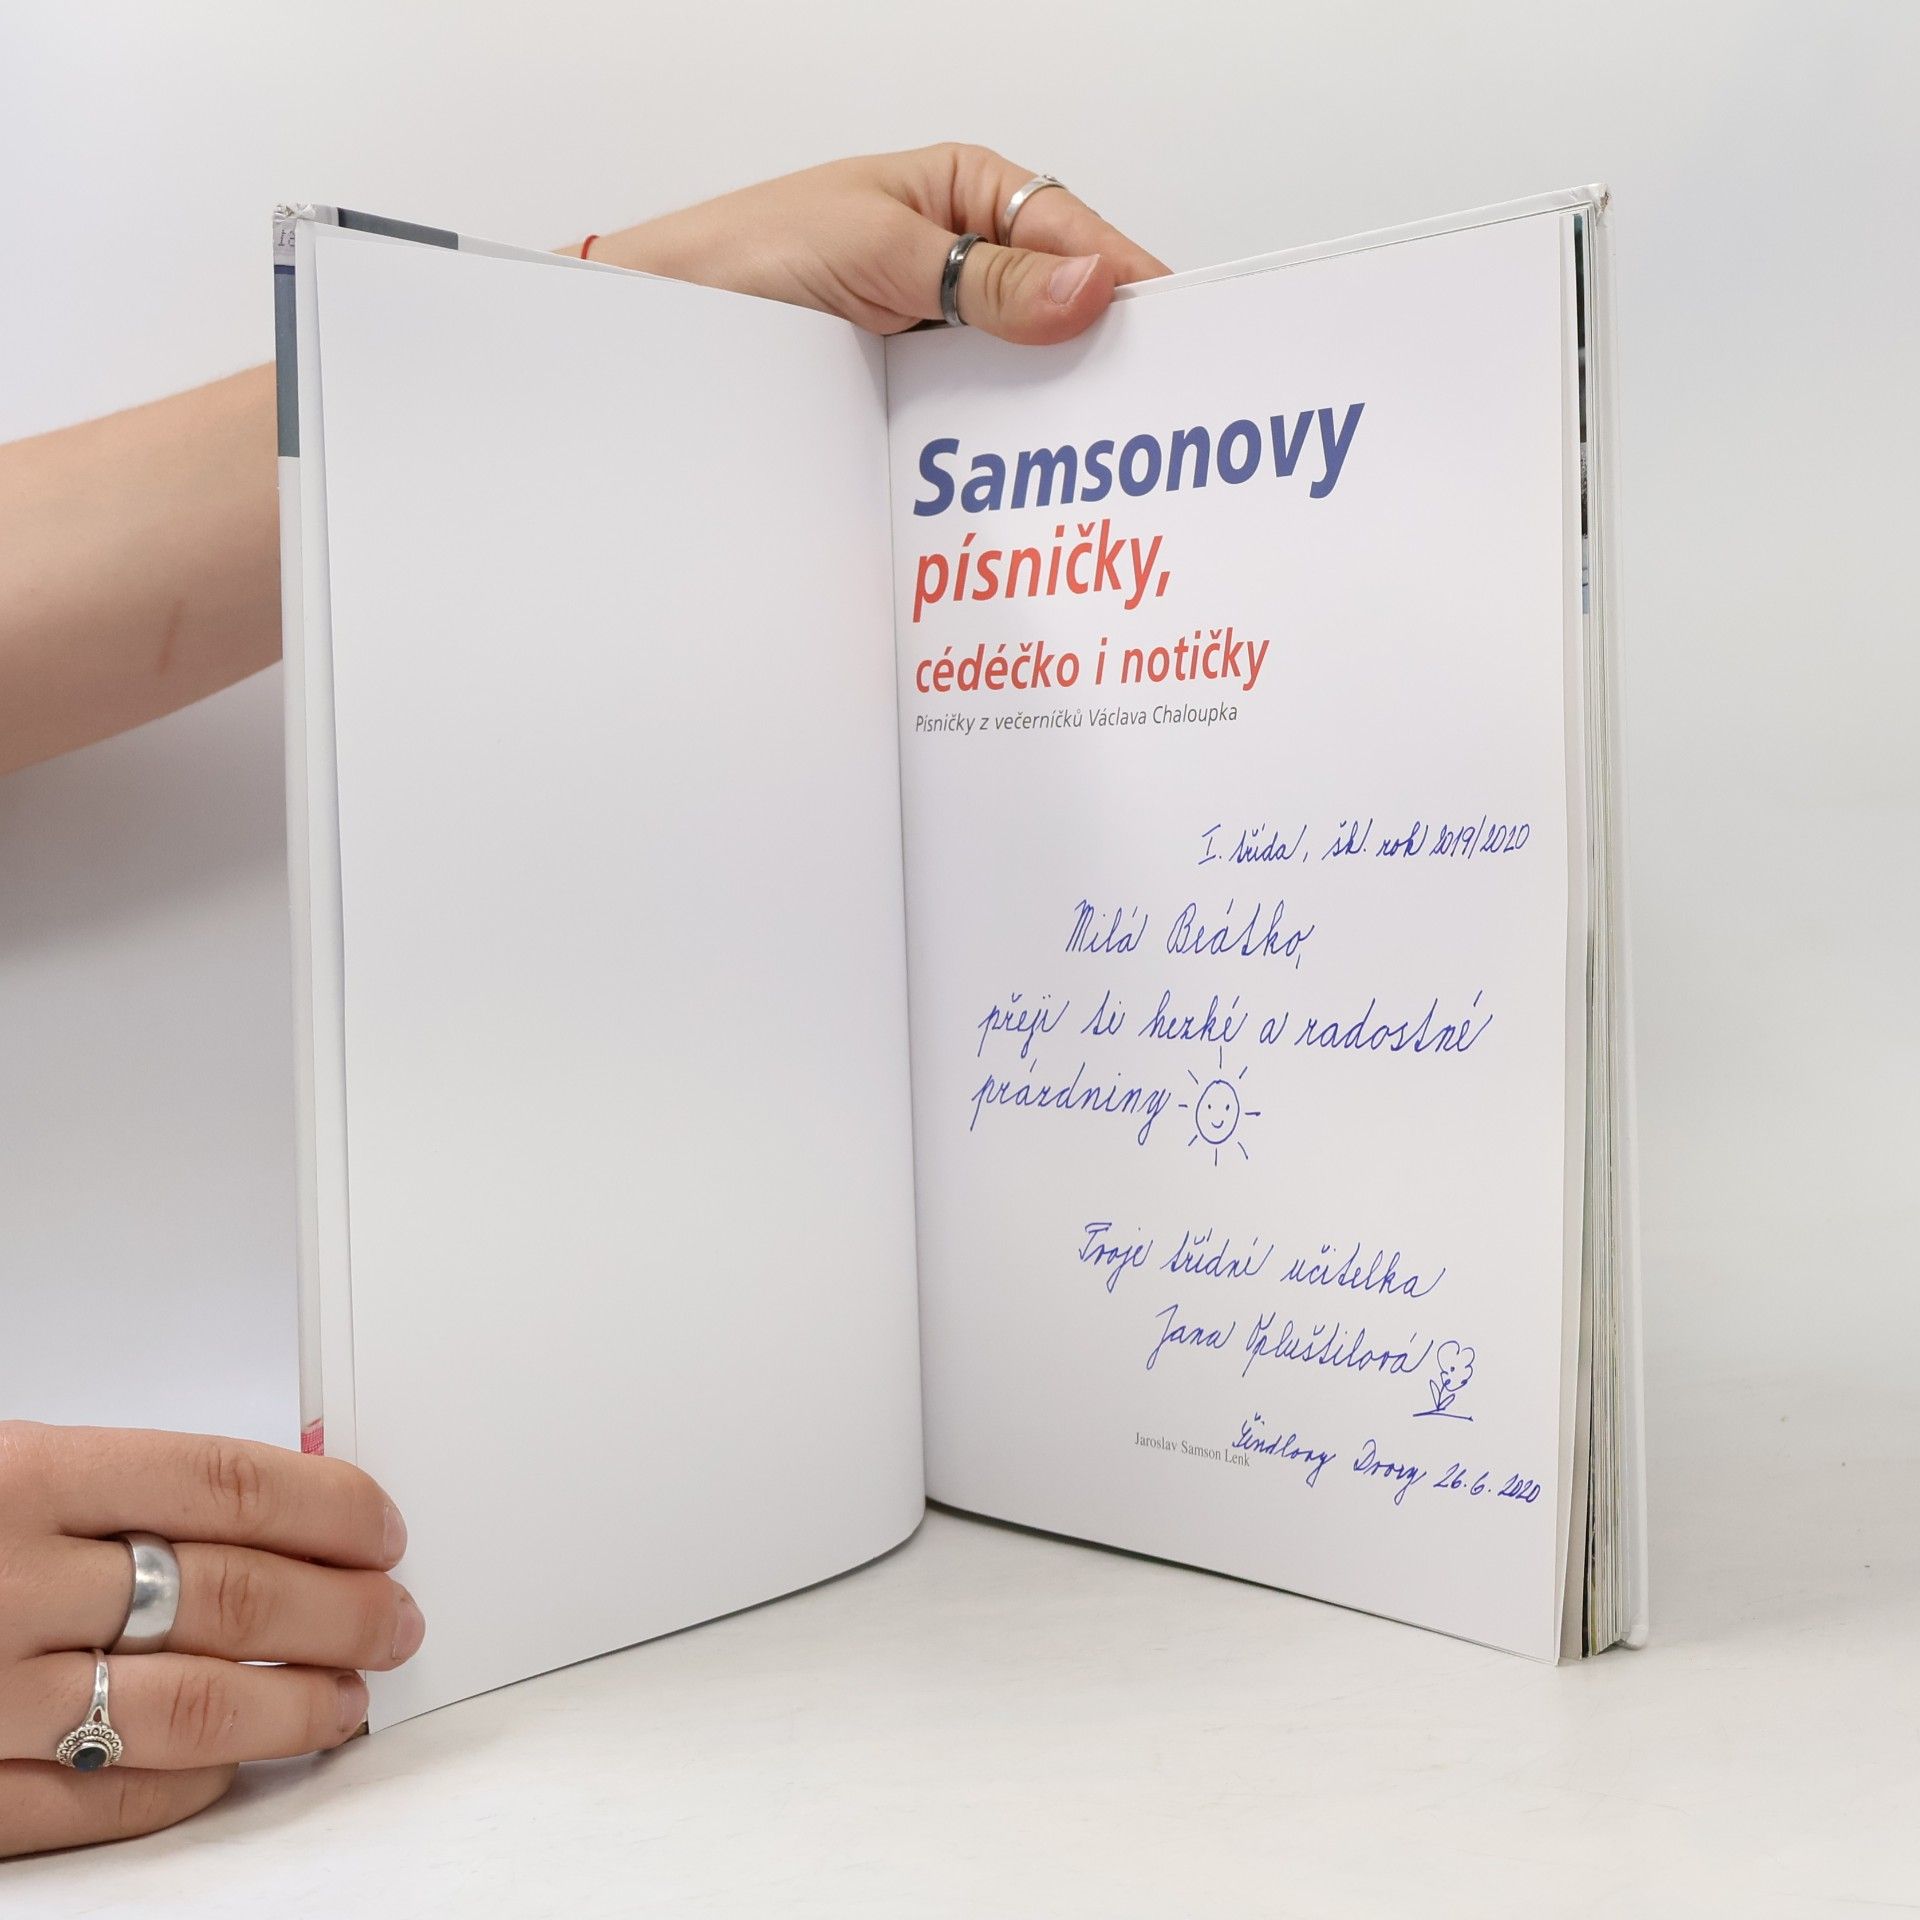 Samsonovy
písničky,
cédéčko i notičky
Písničky z večerníčků Václava Chaloupka
I. třída, šk. rok 2019/2020
Milá Beátko,
přeji ti hezké a radostné
prázdniny
Tvoje třídní učitelka
Jana Opluštilová
Jaroslav Samson Lenk
Šindlovy Dvory 26.6.2020